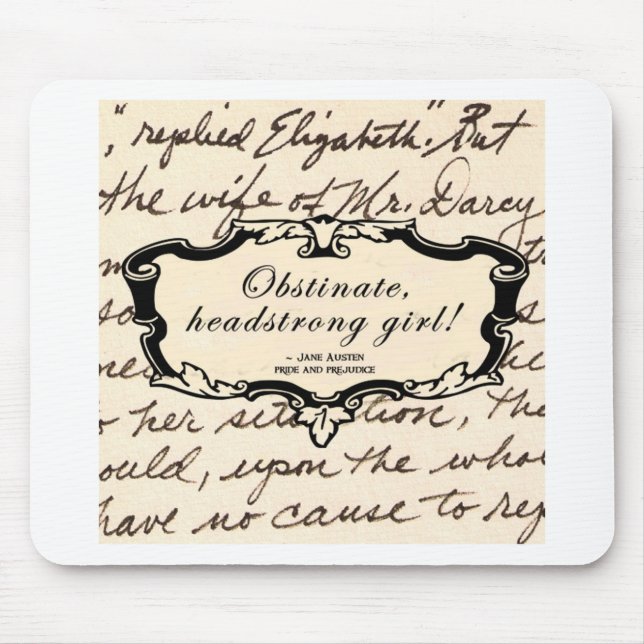 ," replied Elizabeth." But
the wife of Mr. Darcy
Obstinate,
headstrong girl!
~ Jane Austen
pride and prejudice
her situ tion, the
ould, upon the whol
have no cause to rep